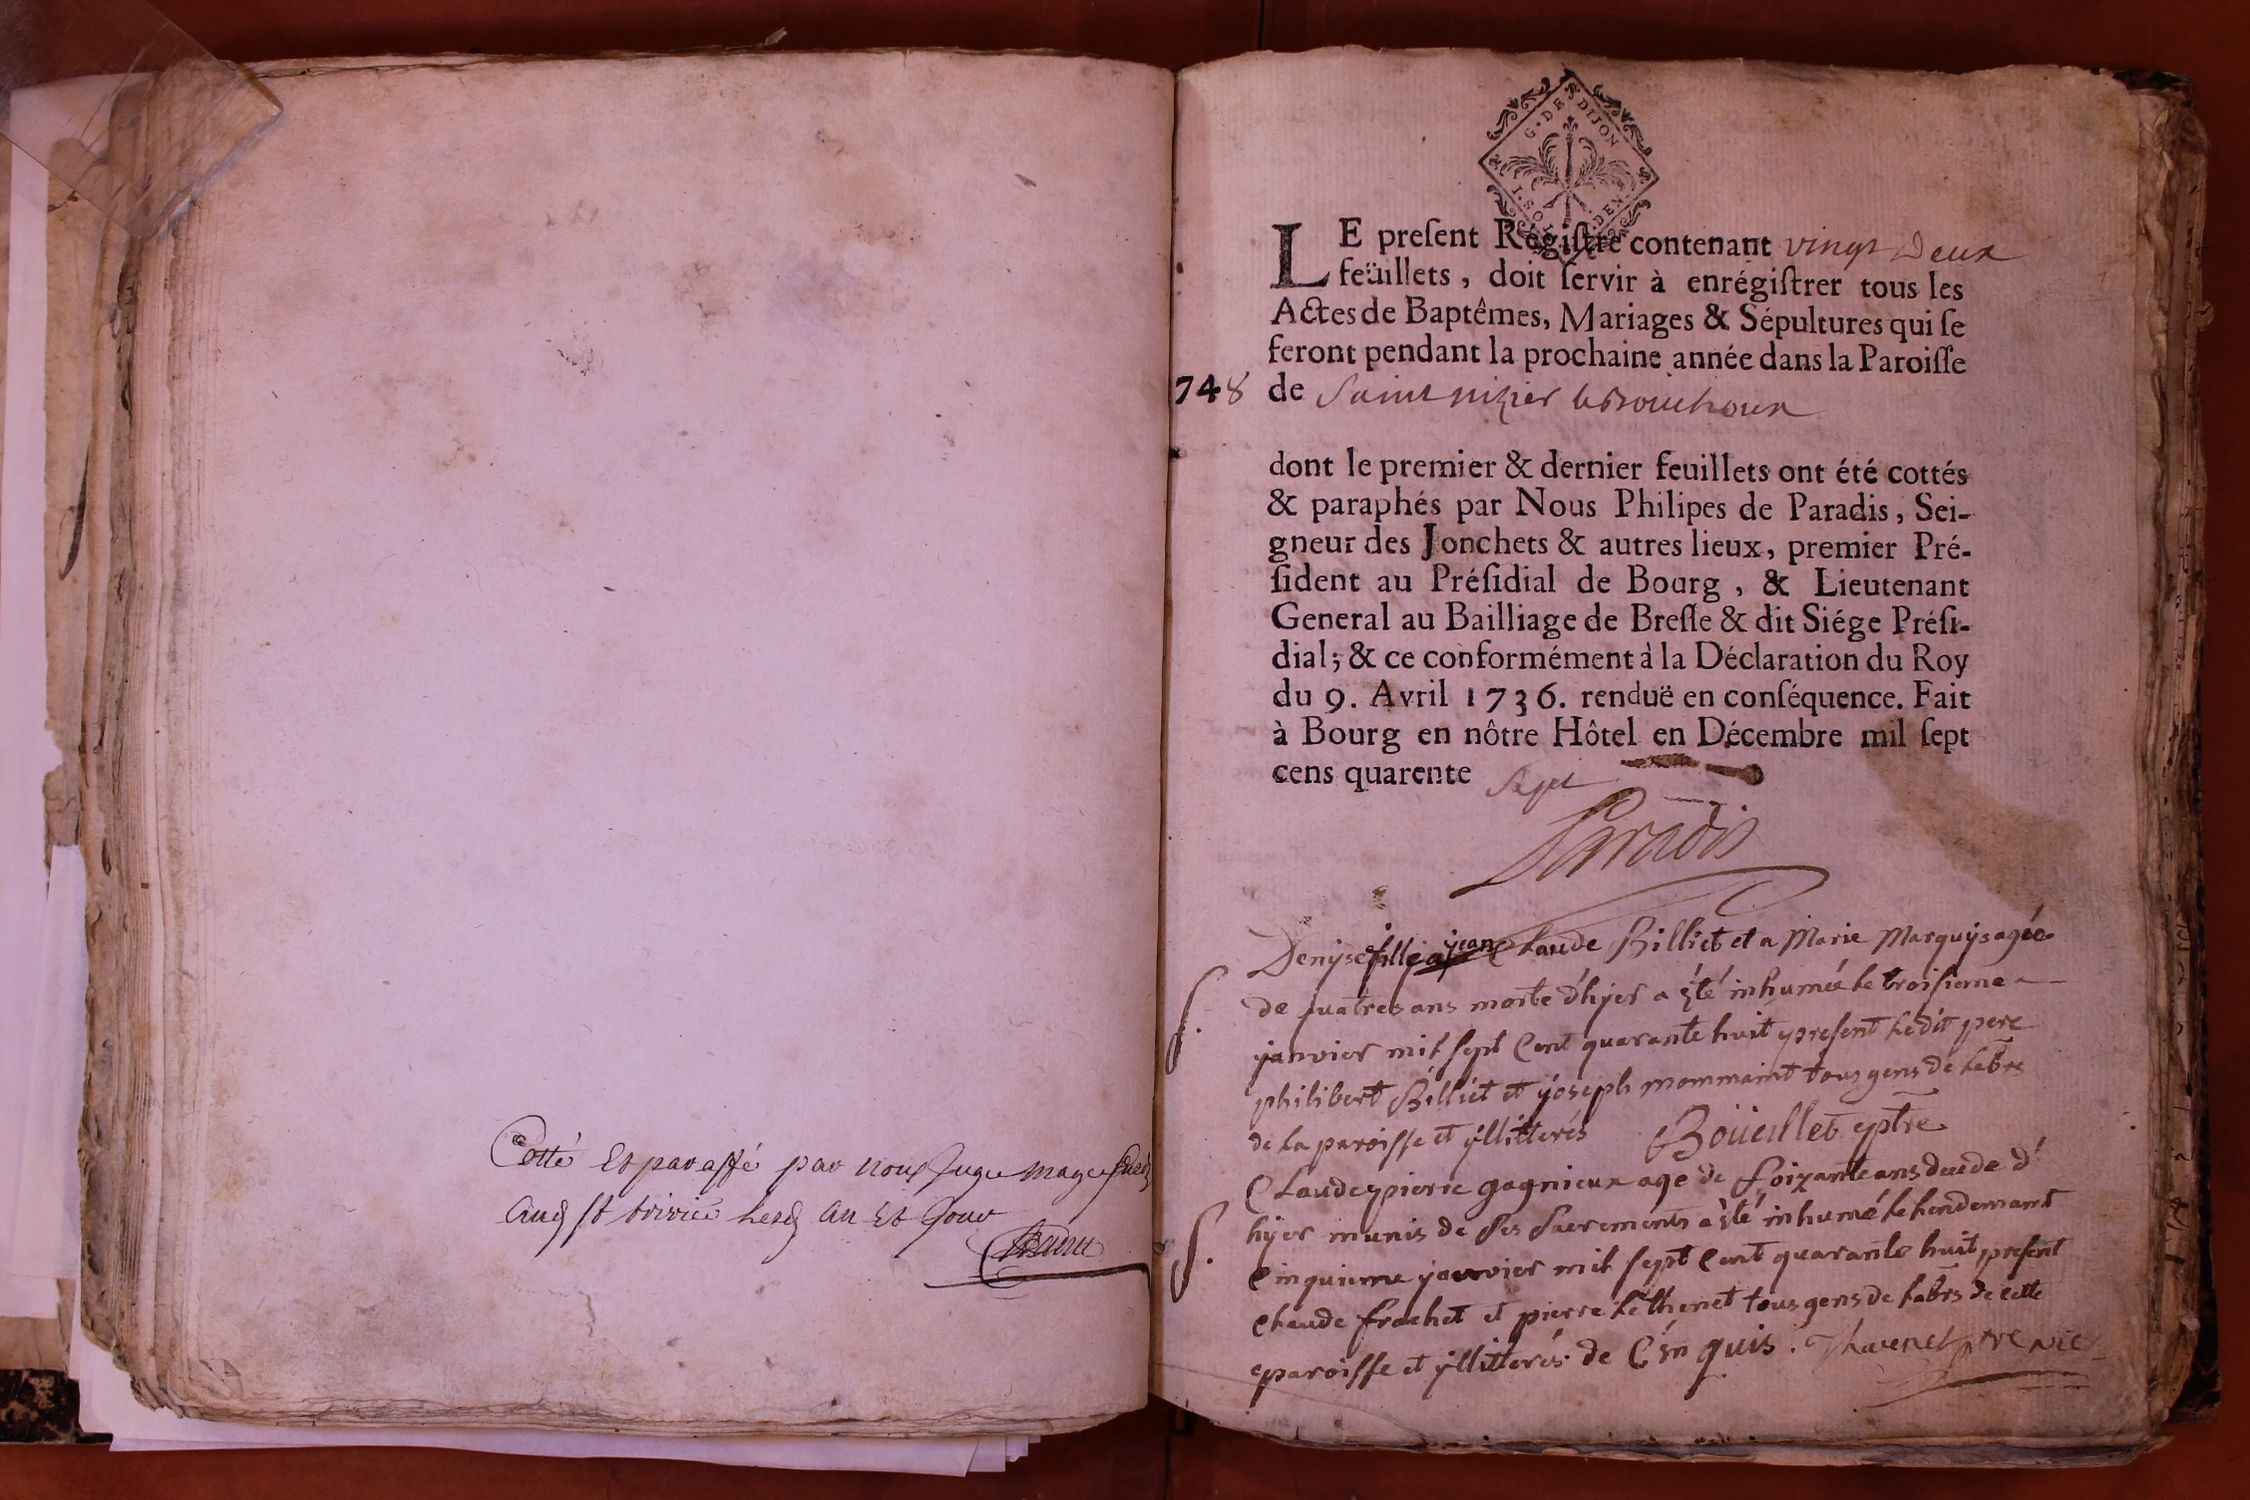 Cotté Et paraffé par nous Juge mage
St trivié lesd an Et Jour
G. DE DIJON
I. SOL DEN.
LE preſent Regiſtre contenant vingt Deux
feüillets, doit ſervir à enrégiſtrer tous les
Actes de Baptêmes, Mariages & Sépultures qui ſe
feront pendant la prochaine année dans la Paroiſſe
748 de Saint nizier le Bouchoux
dont le premier & dernier feuillets ont été cottés
& paraphés par Nous Philipes de Paradis, Sei-
gneur des Jonchets & autres lieux, premier Pré-
ſident au Préſidial de Bourg, & Lieutenant
General au Bailliage de Breſſe & dit Siége Préſi-
dial; & ce conformément à la Déclaration du Roy
du 9. Avril 1736. renduë en conſéquence. Fait
à Bourg en nôtre Hôtel en Décembre mil ſept
cens quarente Sept
Paradis
Denyse fille a jean Claude Billiet et a Marie Marquis agée
de quatres ans morte d'hyer a été inhumée le troisieme
S. janvier mil sept Cent quarante huit present ledit pere
philibert Billiet et joseph mommaint tous gens de labre
de la paroisse et yllitterés Boüeillet ptre
Claude pierre gagnieux age de soizante ans decede d'
S. hyer munis de ses sacrements a été inhumé le lendemant
Cinquieme janvier mil sept Cent quarante huit present
Claude frachet et pierre Léthenet tous gens de labrs de cette
paroisse et yllitterés de Cén quis. Thevenet ptre vic